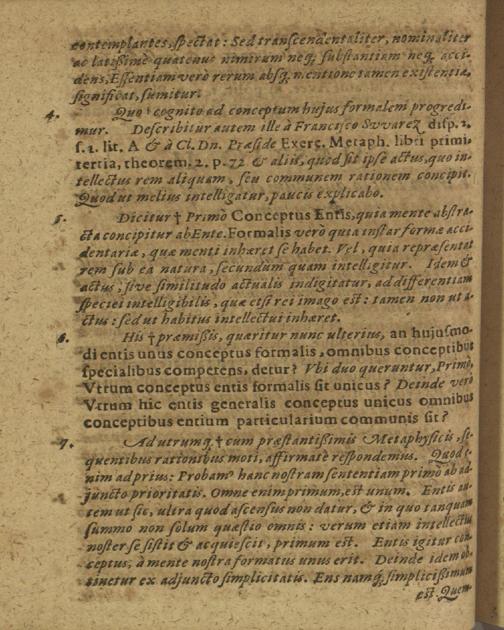 contemplantes, spectat: Sed transcendentaliter, nominaliter
ac latissimè quatenus nimirum neq; substantiam neq, acci-
dens, Essentiam verò rerum absq, mentione tamen existentiæ,
significat, sumitur.
4. Quo cognito ad conceptum hujus formalem progredi-
mur. Describitur autem ille à Francisco Svvarez disp. 2.
s. 1. lit. A & à Cl. Dn. Præside Exerc. Metaph. libri primi,
tertia, theorem. 2. p. 72 & aliis, quod sit ipse actus, quo in-
tellectus rem aliquam, seu communem rationem concipit.
Quod ut melius intelligatur, paucis explicabo.
5. Dicitur † Primò Conceptus Entis, quia mente abstra-
cta concipitur ab Ente. Formalis verò quia instar formæ acci-
dentariæ, quæ menti inhæret se habet. Vel, quia repræsentat
rem sub ea natura, secundum quam intelligitur. Idem &
actus, sive similitudo actualis indigitatur, ad differentiam
speciei intelligibilis, quæ etsi rei imago est: tamen non ut a-
ctus: sed ut habitus intellectui inhæret.
6. His † præmissis, quæritur nunc ulterius, an hujusmo-
di entis unus conceptus formalis, omnibus conceptibus
specialibus competens, detur? Vbi duo queruntur, Primò,
Vtrum conceptus entis formalis sit unicus? Deinde verò
Vtrum hic entis generalis conceptus unicus omnibus
conceptibus entium particularium communis sit?
7. Ad utrumq, † cum præstantissimis Metaphysicis, se-
quentibus rationibus moti, affirmatè respondemus. Quod e-
nim ad prius: Probam⁹ hanc nostram sententiam primò ab ad-
juncto prioritatis. Omne enim primum, est unum. Entis au-
tem ut sic, ultra quod ascensus non datur, & in quo tanquam
summo non solùm quæstio omnis: verum etiam intellectus
noster se sistit & acquiescit, primum est. Entis igitur con-
ceptus, à mente nostra formatus unus erit. Deinde idem ob-
tinetur ex adjuncto simplicitatis. Ens namq, simplicissimum
est. Quem-